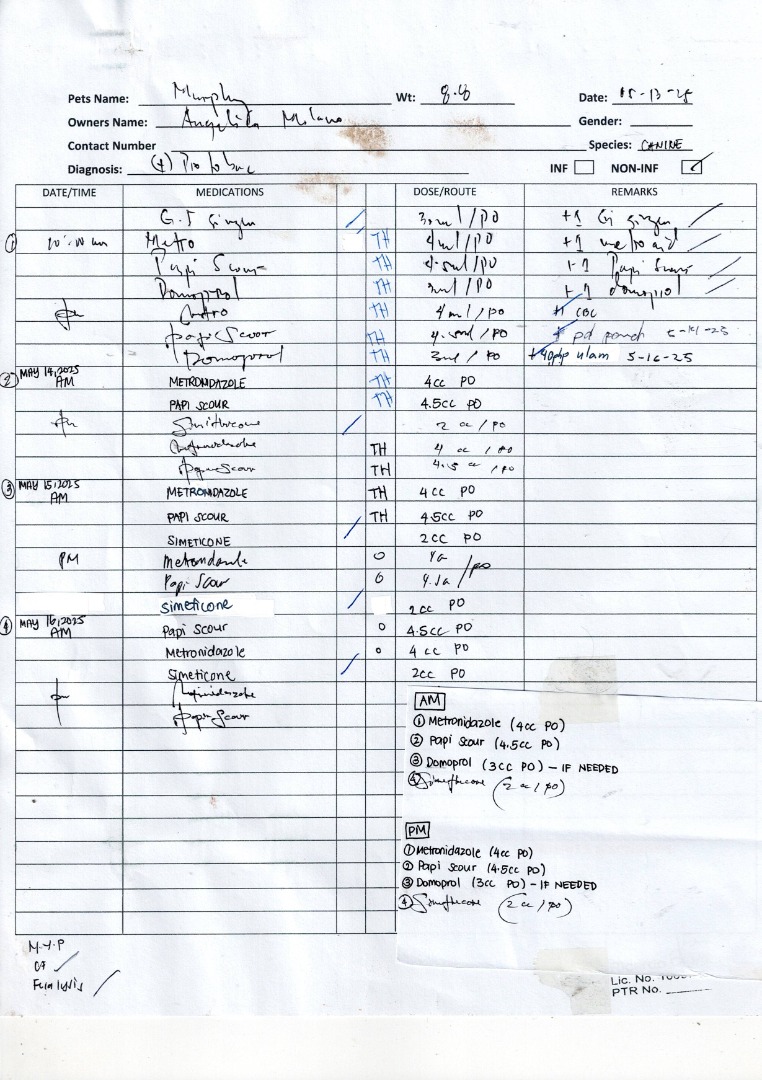 Pets Name: Murphy Wt: 8.8 Date: 05-13-25
Owners Name: Angelika Milano Gender:
Contact Number Species: CANINE
Diagnosis: (+) Protozoa INF NON-INF ✓
DATE/TIME MEDICATIONS DOSE/ROUTE REMARKS
G.I 3ml/PO +1 Gi
① 10:00 am Metro TH 4ml/PO +1
Papi Scour TH 4.5ml/PO +1 Papi Scour
Domoprol TH 3ml/PO +1 domoprol
pm Metro TH 4ml/PO +1 CBC
papi Scour TH 4.5ml/PO + pd pouch 5-14-25
Domoprol TH 3ml/PO +40php ulam 5-16-25
② MAY 14,2025 AM METRONIDAZOLE TH 4cc PO
PAPI SCOUR TH 4.5cc PO
pm Simithecone 2 cc/po
Metronidazole TH 4 cc/po
Papi Scour TH 4.5 cc/po
③ MAY 15,2025 AM METRONIDAZOLE TH 4cc PO
PAPI SCOUR TH 4.5cc PO
SIMETICONE 2cc PO
PM Metronidazole O 4cc
Papi Scour O 4.5cc /po
Simeticone 2cc PO
④ MAY 16,2025 AM Papi Scour O 4.5cc PO
Metronidazole O 4 cc PO
Simeticone 2cc PO
pm Metronidazole
Papi Scour
AM
① Metronidazole (4cc PO)
② Papi Scour (4.5cc PO)
③ Domoprol (3cc PO) - IF NEEDED
④ Simethecone (2cc/po)
PM
① Metronidazole (4cc PO)
② Papi Scour (4.5cc PO)
③ Domoprol (3cc PO) - IF NEEDED
④ Simethecone (2cc/po)
M.Y.P
CF ✓
Fecalysis
Lic. No.
PTR No.